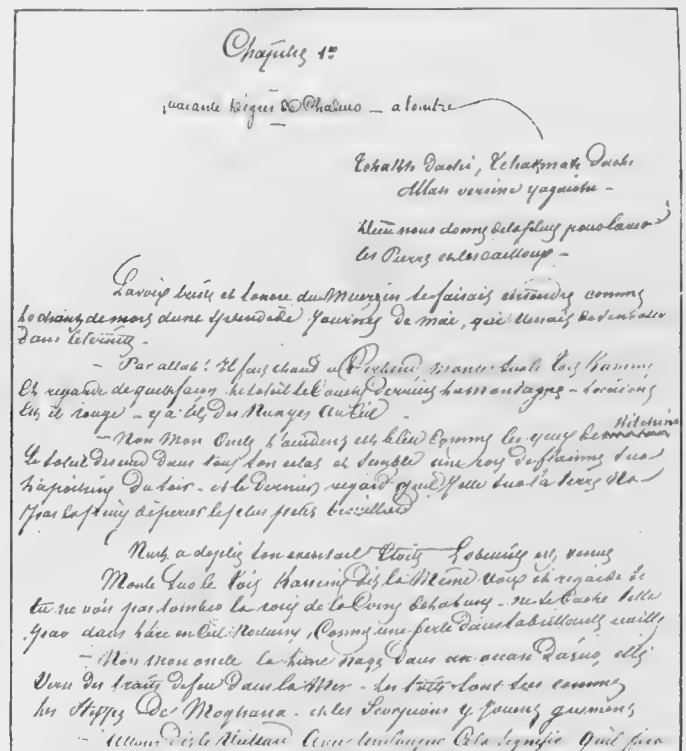 Chapitre 1er
quarante degrés de Chaleur — a lombre
Tchakh Dachi, Tchakmah Dachi
Allah versine yagaichu —
Dieu nous donne de la pluie pour laver
les Pierres et les cailloux —
La voix brisée et sonore du Muezzin se faisait entendre comme
le chant de mort dune splendide journée de mai, qui venait de senvoler
Dans leternité —
— Par allah! Il fait chaud a monter sur le toit Kassim
Et regarde de quelle façon le soleil se couche derrière les montagnes —
Est il rouge — y a til des Nuages au Ciel
— Non Mon Oncle est bleu comme les yeux de
Le soleil descend dans tout son eclat et semble une rose de flamme sur
la poitrine du soir — et le Dernier regard quil jette sur la terre Na
pas la peine de percer le plus petit brouillard
Nuit a deplié son eventail etoilé Lobscurité est venue
Monte sur le toit Kassim dit la Même voix et regarde si
tu ne vois pas tomber la rosée de la Corne de la lune — ne se Cache telle
pas dans larc en Ciel Nocturne, Comme une perle dans la brillante coquille
— Non mon oncle la lune nage dans un ocean Dazur, elle
Verse des traits de feu Dans la Mer — les toits sont secs comme
les Steppes de Moghana — et les Scorpions y jouent gaiement
— Allons dit le Vieillard avec un soupir Cela signifie quil fera